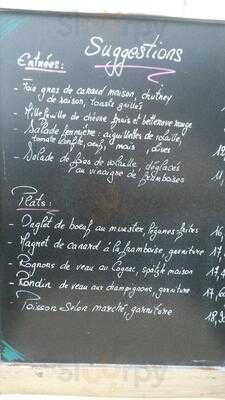 Suggestions
Entrées :
- Foie gras de canard maison, chutney
de saison, toasts grillés
- Mille feuille de chèvre frais et betterave rouge
- Salade fermière : aiguillettes de volaille,
tomate, oeuf, maïs
- Salade de foies de volaille déglacés
au vinaigre de framboises 11,
Plats :
- Onglet de boeuf au munster, légumes, frites 16,
- Magret de canard à la framboise, garniture 17,
- Rognons de veau au Cognac, spätzle maison 17,
- Rondin de veau aux champignons, garniture 17,
- Poisson selon marché, garniture 18,